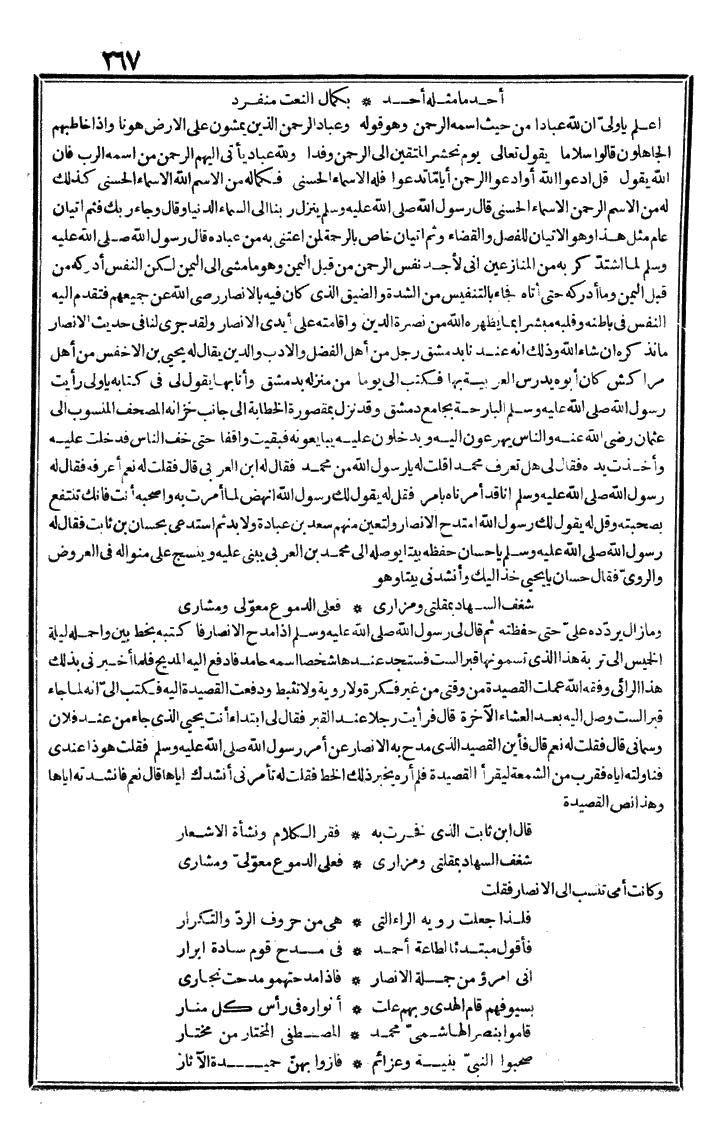 ٣٦٧
أحد ما مثله أحد * بكمال النعت منفرد
اعلم يا ولىّ ان لله عبادا من حيث اسمه الرحمن وهو قوله وعباد الرحمن الذين يمشون على الارض هونا واذا خاطبهم
الجاهلون قالوا سلاما يقول تعالى يوم نحشر المتقين الى الرحمن وفدا ولله عباد يأتى اليهم الرحمن من اسمه الرب فان
الله يقول قل ادعوا الله أو ادعوا الرحمن أياما تدعوا فله الاسماء الحسنى فكما له من الاسم الله الاسماء الحسنى كذلك
له من الاسم الرحمن الاسماء الحسنى قال رسول الله صلى الله عليه وسلم ينزل ربنا الى السماء الدنيا وقال وجاء ربك فثم اتيان
عام مثل هذا وهو الاتيان للفصل والقضاء وثم اتيان خاص بالرحمة لمن اعتنى به من عباده قال رسول الله صلى الله عليه
وسلم لما اشتدّ كربه من المنازعين انى لأجد نفس الرحمن من قبل اليمن وهو ما مشى الى اليمن لكن النفس أدركه من
قبل اليمن وما أدركه حتى أتاه فجاء بالتنفيس من الشدة والضيق الذى كان فيه بالانصار رضى الله عن جميعهم فتقدم اليه
النفس فى باطنه وقلبه مبشرا بما يظهره الله من نصرة الدين واقامته على أيدى الانصار ولقد جرى لنا فى حديث الانصار
ما نذكره ان شاء الله وذلك انه عندنا بدمشق رجل من أهل الفضل والادب والدين يقال له يحيى بن الاخفس من أهل
مراكش كان أبوه يدرس العربية بها فكتب الى يوما من منزله بدمشق وأنا بها يقول لى فى كتابه يا ولى رأيت
رسول الله صلى الله عليه وسلم البارحة بجامع دمشق وقد نزل بمقصورة الخطابة الى جانب خزانه المصحف المنسوب الى
عثمان رضى الله عنه والناس يهرعون اليه ويدخلون عليه يبايعونه فبقيت واقفا حتى خف الناس فدخلت عليه
وأخذت يده فقال لى هل تعرف محمدا قلت له يا رسول الله من محمد فقال له ابن العربى قال فقلت له نعم أعرفه فقال له
رسول الله صلى الله عليه وسلم انا قد أمرناه بامر فقل له يقول لك رسول الله انهض لما أمرت به واصحبه أنت فانك تنتفع
بصحبته وقل له يقول لك رسول الله امتدح الانصار ولتعين منهم سعد بن عبادة ولا بد ثم استدعى بحسان بن ثابت فقال له
رسول الله صلى الله عليه وسلم يا حسان حفظه بيتا يوصله الى محمد بن العربى يبنى عليه وينسج على منواله فى العروض
والروىّ فقال حسان يا يحيى خذ اليك وأنشدنى بيتا وهو
شغف السهاد بمقلتى ومزارى * فعلى الدموع معوّلى ومشارى
وما زال يردّده علىّ حتى حفظته ثم قال لى رسول الله صلى الله عليه وسلم اذا مدح الانصار فاكتبه بخط بين واحمله ليلة
الخميس الى تربة هذا الذى تسمونها قبر الست فستجد عندها شخصا اسمه حامد فادفع اليه المديح فلما أخبرنى بذلك
هذا الرائى وفقه الله عملت القصيدة من وقتى من غير فكرة ولا روية ولا تثبط ودفعت القصيدة اليه فكتب الىّ انه لما جاء
قبر الست وصل اليه بعد العشاء الآخرة قال فرأيت رجلا عند القبر فقال لى ابتداء أنت يحيى الذى جاء من عند فلان
وسمانى قال فقلت له نعم قال فأين القصيد الذى مدح به الانصار عن أمر رسول الله صلى الله عليه وسلم فقلت هو ذا عندى
فناولته اياه فقرب من الشمعة ليقرأ القصيدة فلم أره يخبر ذلك الخط فقلت له تأمرنى أنشدك اياها قال نعم فانشدته اياها
وهذا نص القصيدة
قال ابن ثابت الذى نخرت به * فقر الكلام ونشأة الاشعار
شغف السهاد بمقلتى ومزارى * فعلى الدموع معوّلىّ ومشارى
وكانت أمى تنسب الى الانصار فقلت
فلذا جعلت رويه الراء التى * هى من حروف الردّ والتكرار
فأقول مبتدئا لطاعة أحمد * فى مدح قوم سادة ابرار
انى امرؤ من جملة الانصار * فاذا مدحتهمو مدحت نجارى
بسيوفهم قام الهدى وبهم علت * أنواره فى رأس كل منار
قاموا بنصر الهاشمىّ محمد * المصطفى المختار من مختار
صحبوا النبىّ بنية وعزائم * فازوا بهنّ حميدة الآثار